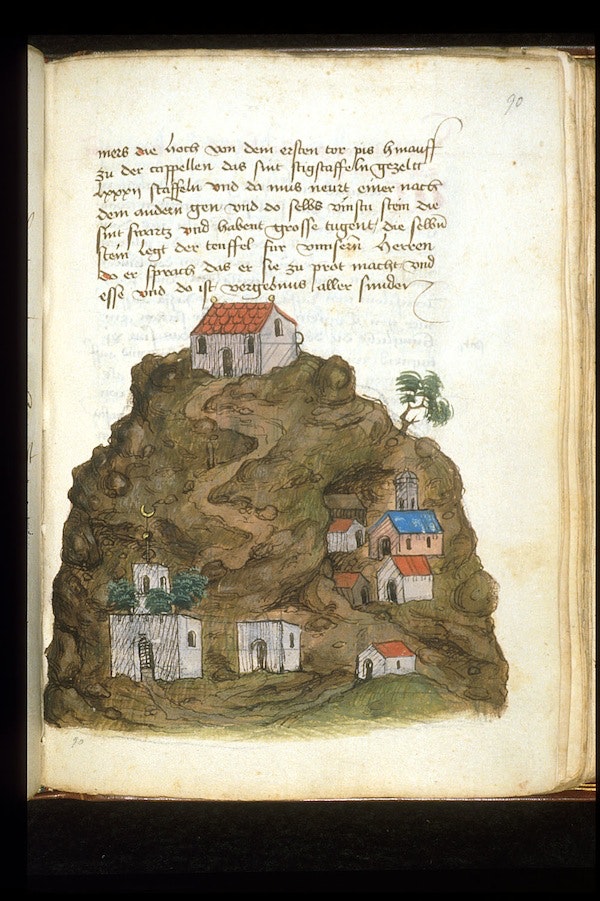 90
mers die hoch von dem ersten tor pis hinauff
zu der cappellen das sint stigstaffeln gezelt
lxxxii staffeln vnd da mus neurt einer nach
dem andern gen vnd do selbs vinstu stein die
sint swartz vnd habent grosse tugent / die selbn
stein legt der teuffel fur vnnsern herren
do er sprach das er sie zu prot macht vnd
esse vnd do ist vergebnus aller sunden
90